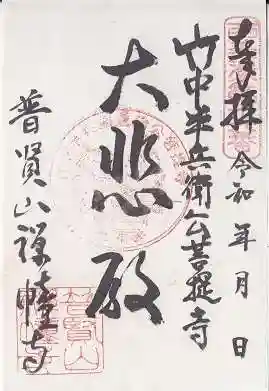 奉拝 令和 年 月 日
竹中半兵衛公菩提寺
大悲殿
普賢山禅幢寺
普賢山